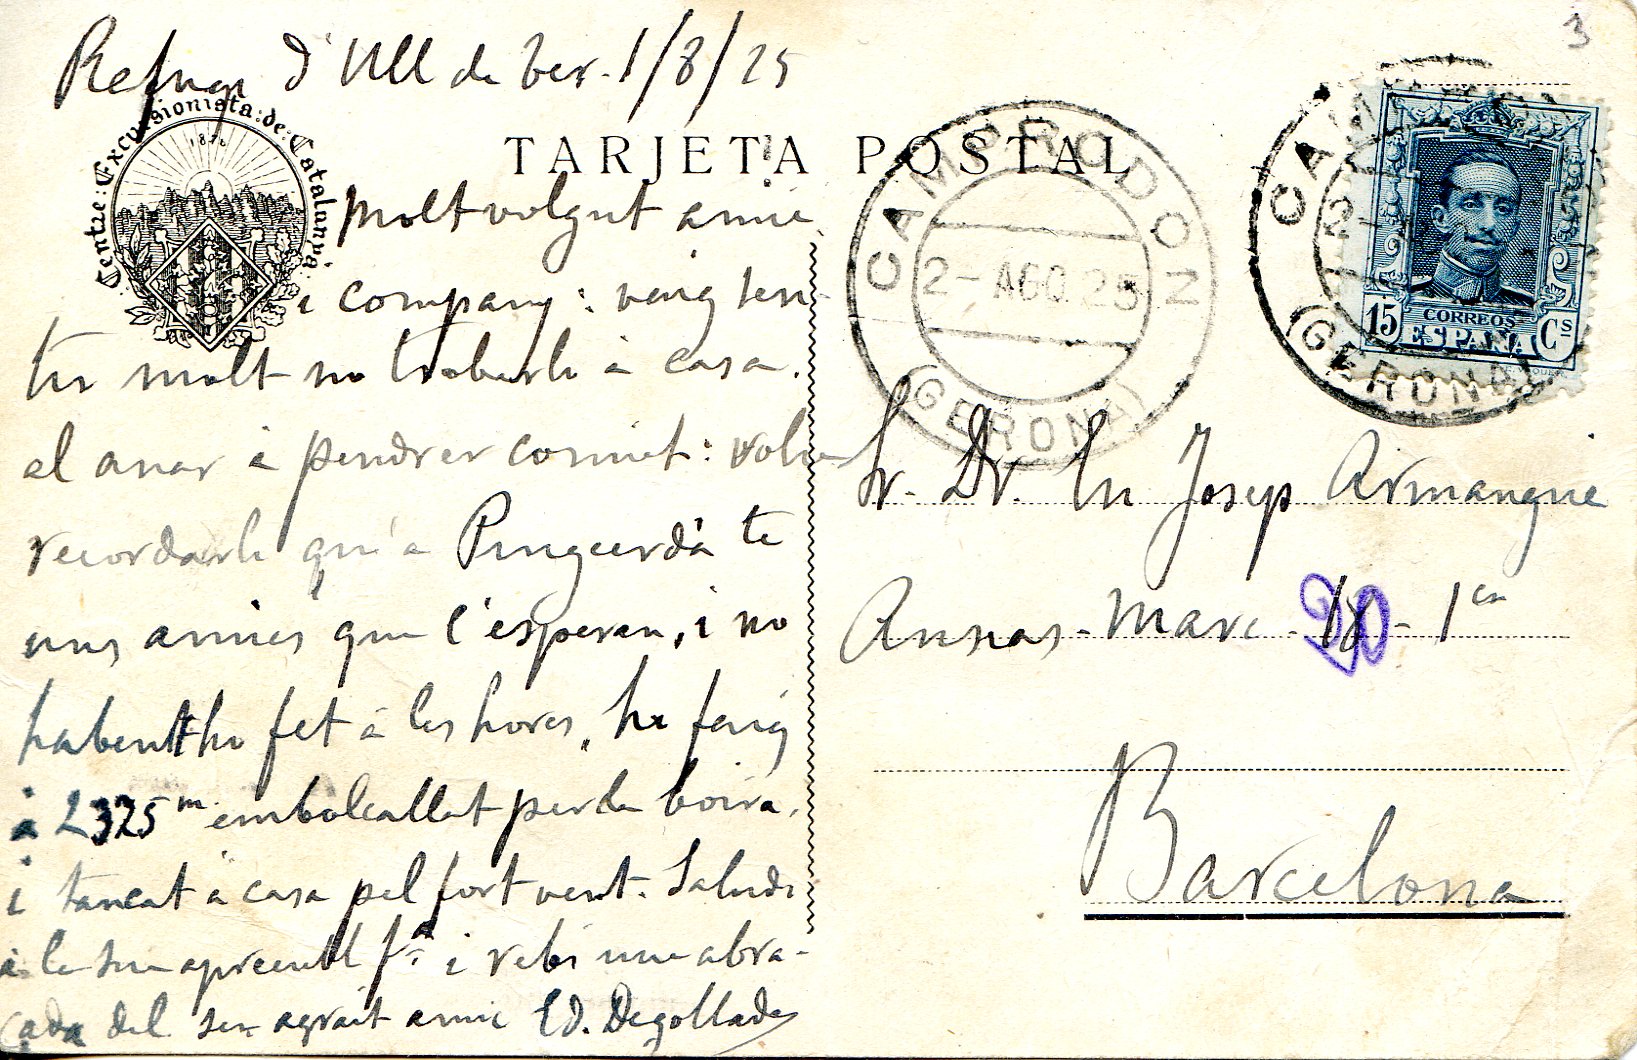 3
Refugi d'Ull de Ter. 1/8/25
Centre: Excursionista: de: Catalunya:
1876
TARJETA POSTAL
CAMPRODON
2- AGO. 25
(GERONA)
CAMPRODON
(GERONA)
15 Cs
CORREOS
ESPAÑA
Molt volgut amic
i company: vaig sen-
tir molt no trobarli à casa.
al anar à pendrer comiat: volia
recordarli qu'à Puigcerdà te
uns amics que l'esperan, i no
habentho fet à les hores, ho faig
à 2325 m. embolcallat per la boira,
i tancat à casa pel fort vent. Saludi
à la sua apreciable fª i rebi una abra-
çada del seu agrait amic Ed. Degollada
Sr. Dr. En Josep Armangué
Ausias-March-18-1er
20
Barcelona